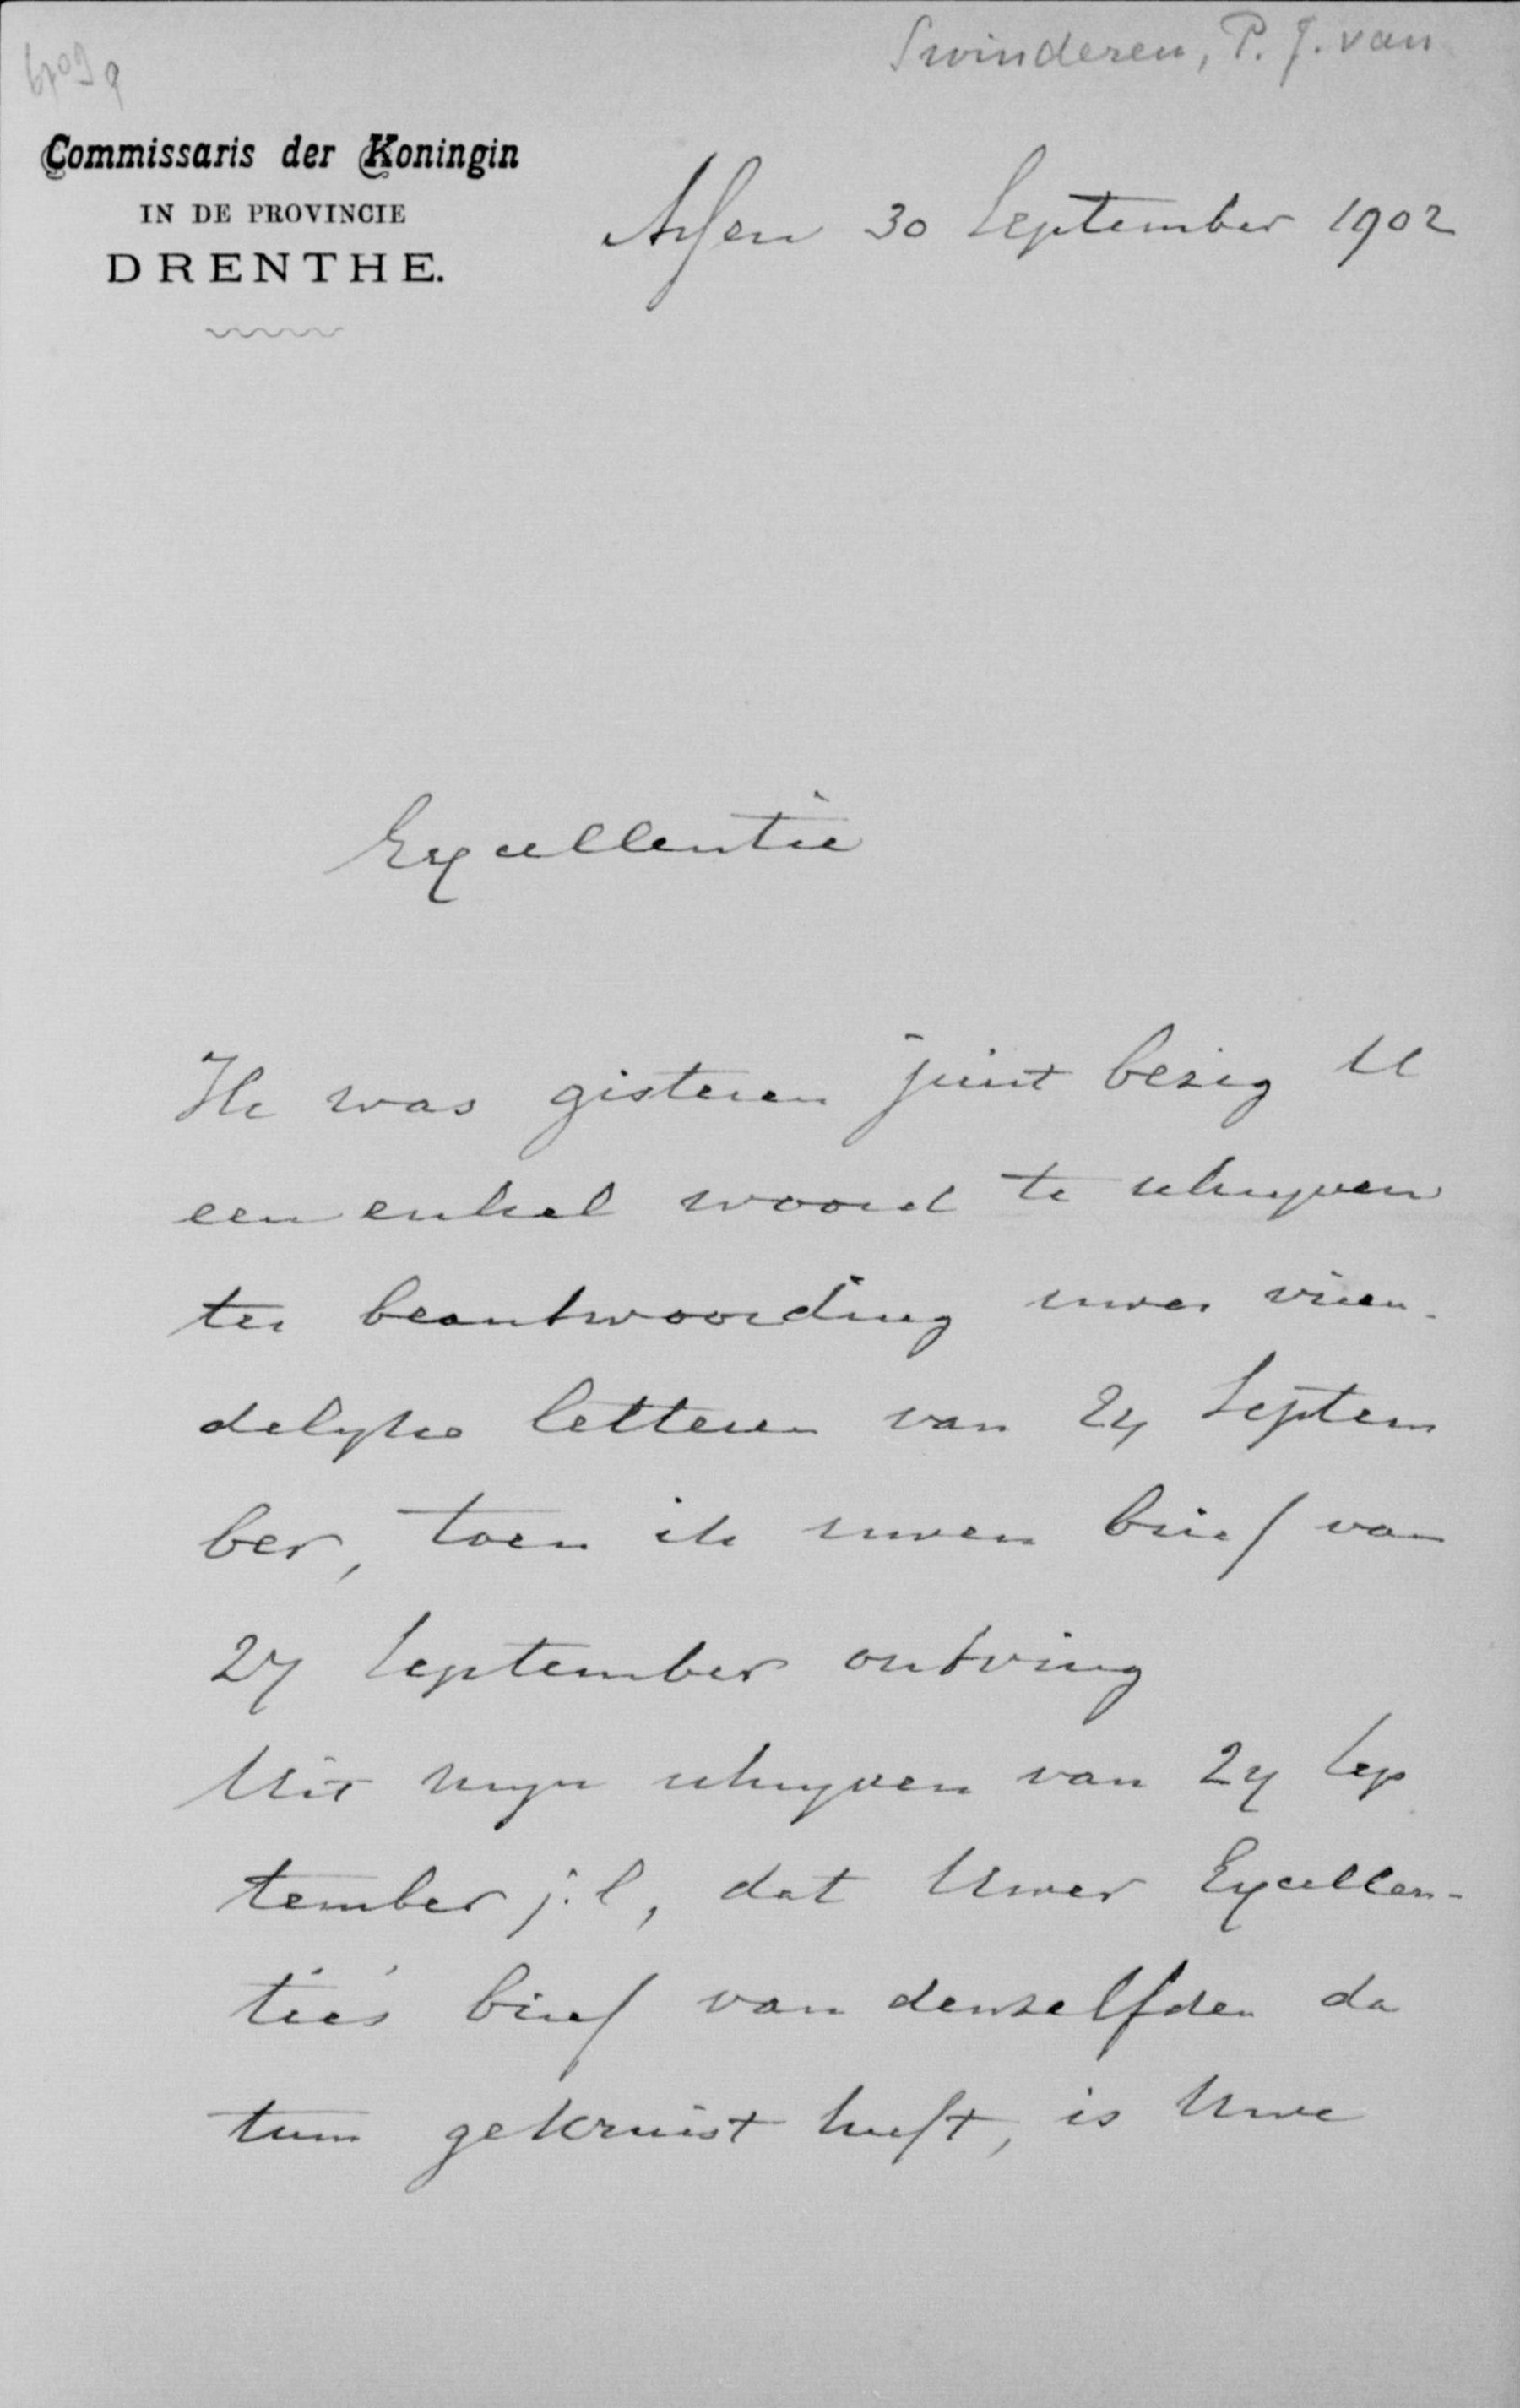 Swinderen, P. J. van
6709 a
Commissaris der Koningin
IN DE PROVINCIE
DRENTHE.
Assen 30 September 1902
Excellentie
Ik was gisteren juist bezig U
een enkel woord te schrijven
ter beantwoording uwer vrien-
delijke letteren van 24 Septem
ber, toen ik uwen brief van
27 September ontving
Uit mijn schrijven van 24 Sep
tember j.l, dat Uwer Excellen-
tie's brief van denzelfden da
tum gekruist heeft, is Uwe